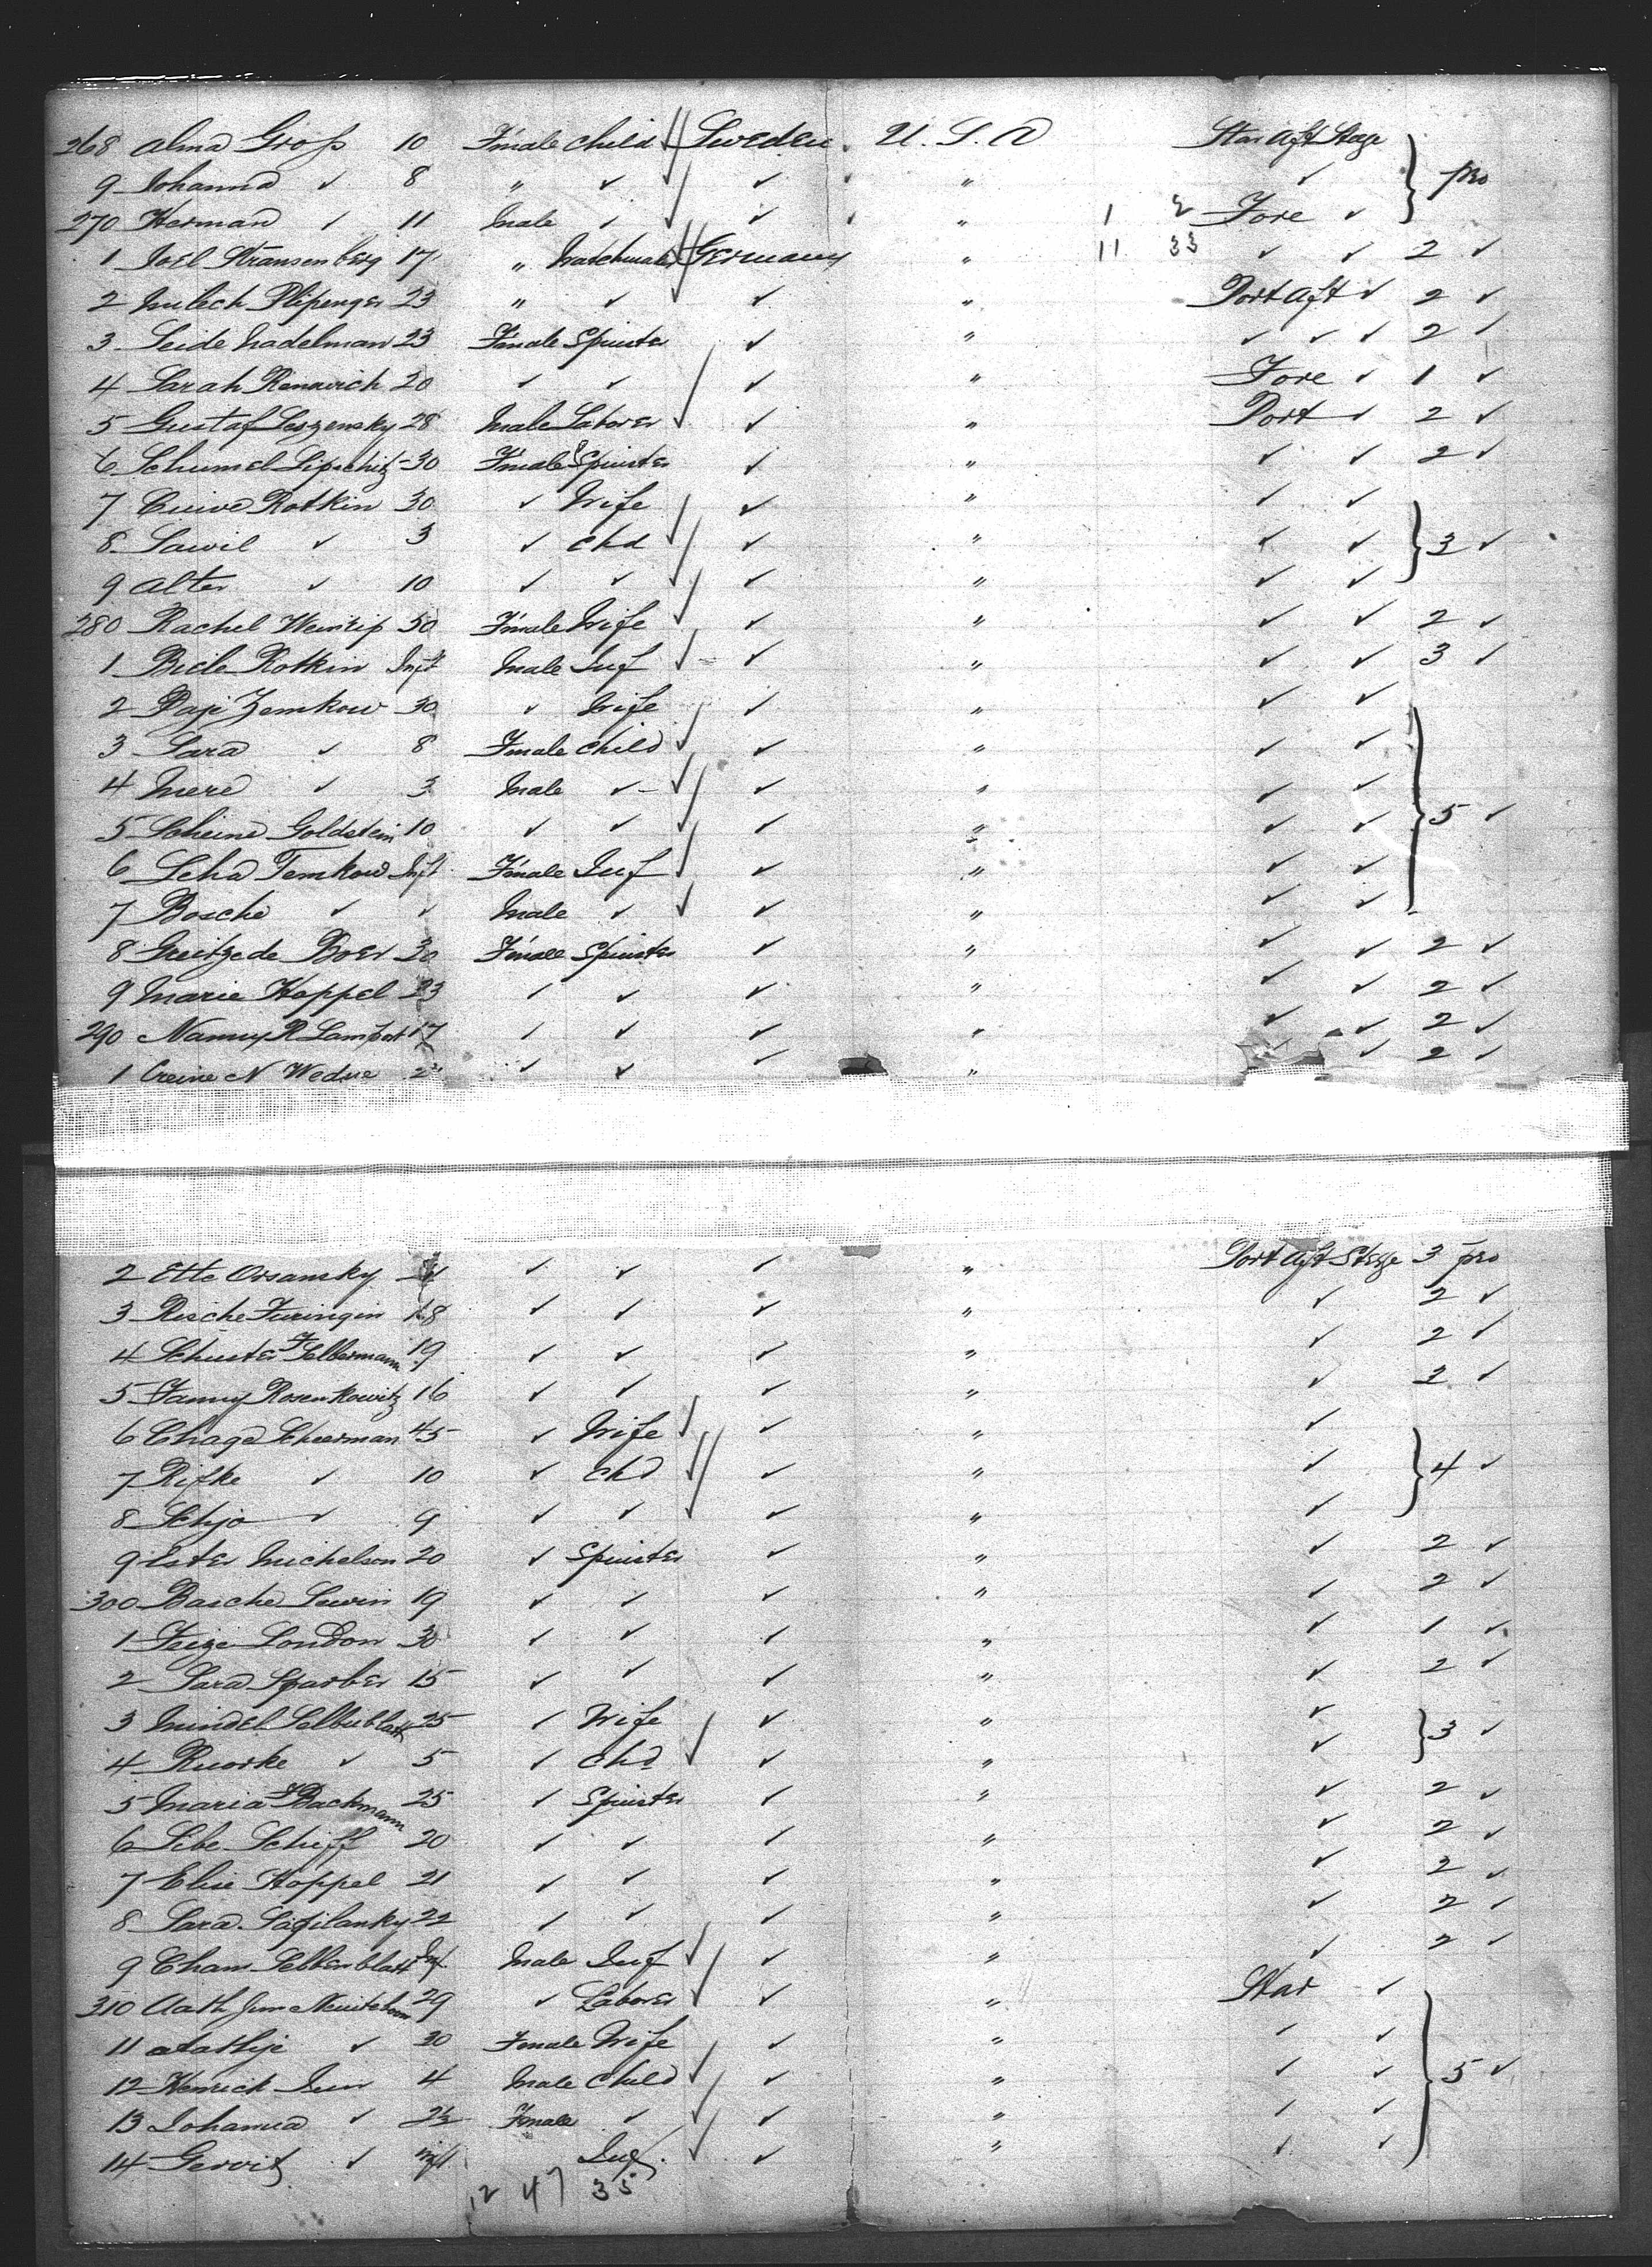 268 Alma Gross 10 Female Child Sweden U. S. A Star Aft Stege
9 Johanna ✓ 8 " ✓ ✓ " ✓ } pro
270 Herman ✓ 11 Male ✓ ✓ " 1 2 Fore ✓
1 Joel Stransenberg 17 " Germany " 11 33 ✓ ✓ 2 ✓
2 23 " ✓ ✓ " Port Aft ✓ 2 ✓
3 Leide Nadelman 23 Female Spinster ✓ " ✓ ✓ ✓ 2 ✓
4 Sarah 20 ✓ ✓ ✓ " Fore ✓ 1 ✓
5 Gustaf 28 Male Laborer ✓ " Port ✓ 2 ✓
6 Schumel Lipschitz 30 Female Spinster ✓ " ✓ ✓ 2 ✓
7 Rotkin 30 ✓ Wife ✓ " ✓ ✓
8 Sawil ✓ 3 ✓ Chd ✓ " ✓ ✓ } 3 ✓
9 Alter ✓ 10 ✓ ✓ ✓ " ✓ ✓
280 Rachel 50 Female Wife ✓ " ✓ ✓ 2 ✓
1 Rotkin Inft Male Inf ✓ " ✓ ✓ 3 ✓
2 Zemkow 30 ✓ Wife ✓ " ✓ ✓
3 Sara ✓ 8 Female Child ✓ " ✓ ✓
4 Mere ✓ 3 Male ✓ ✓ " ✓ ✓
5 Scheine Goldstein 10 ✓ ✓ ✓ " ✓ ✓ } 5 ✓
6 Leha Temkow Inft Female Inf ✓ " ✓ ✓
7 Bosche ✓ ✓ Male ✓ ✓ " ✓ ✓
8 Greitze de Boer 30 Female Spinster ✓ " ✓ ✓ 2 ✓
9 Marie Koppel 23 ✓ ✓ ✓ " ✓ ✓ 2 ✓
290 Nanny R Lampert 17 ✓ ✓ ✓ " ✓ ✓ 2 ✓
1 Creine N ✓ ✓ ✓ " ✓ 2 ✓
2 Ette Orsansky ✓ ✓ ✓ " Port Aft Stege 3 pro
3 Rische Furingin 18 ✓ ✓ ✓ " ✓ 2 ✓
4 Schuster F Selbermann 19 ✓ ✓ ✓ " ✓ 2 ✓
5 Fanny Rosenkowitz 16 ✓ ✓ ✓ " ✓ 2 ✓
6 Chage Scheerman 45 ✓ Wife ✓ " ✓
7 Rifke ✓ 10 ✓ Chd ✓ " ✓ } 4 ✓
8 Schjo ✓ 9 ✓ ✓ ✓ " ✓
9 Ester Michelson 20 ✓ Spinster ✓ " ✓ 2 ✓
300 Basche Lewin 19 ✓ ✓ ✓ " ✓ 2 ✓
1 Feige London 30 ✓ ✓ ✓ " ✓ 1 ✓
2 Sara Sparber 15 ✓ ✓ ✓ " ✓ 2 ✓
3 Mindel Selbublatt 25 ✓ Wife ✓ " ✓
4 Ruorke ✓ 5 ✓ Chd ✓ " ✓ } 3 ✓
5 Maria F Bachmann 25 ✓ Spinster ✓ " ✓ 2 ✓
6 Libe Schiff 20 ✓ ✓ ✓ " ✓ 2 ✓
7 Elise Koppel 21 ✓ ✓ ✓ " ✓ 2 ✓
8 Sara 22 ✓ ✓ ✓ " ✓ 2 ✓
9 Cham Selbenblatt Inf Male Inf ✓ " ✓ 2 ✓
310 29 ✓ Laborer ✓ " Star ✓
11 Aaltje ✓ 30 Female Wife ✓ " ✓ ✓
12 Henrich Jun 4 Male Child ✓ " ✓ ✓ } 5 ✓
13 Johanna ✓ 2½ Female ✓ ✓ " ✓ ✓
14 Gerrit ✓ inft Inf. ✓ " ✓ ✓
12 47 35